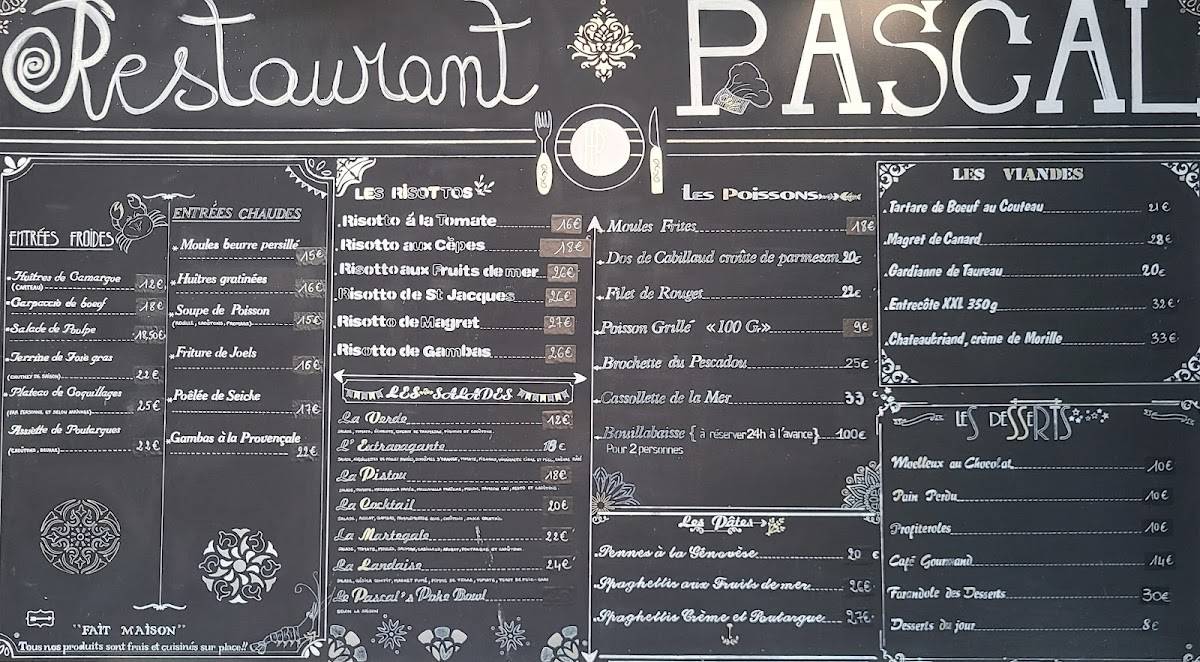 Restaurant PASCAL
ENTRÉES FROIDES
Huîtres de Camargue 12€
(CARTEAU)
Carpaccio de boeuf 18€
Salade de Poulpe 18,50€
Terrine de Foie gras
(CHUTNEY DE SAISON) 22€
Plateau de Coquillages
(PAR PERSONNE ET SELON ARRIVAGES) 25€
Assiette de Poutargues 22€
ENTRÉES CHAUDES
Moules beurre persillé 15€
Huîtres gratinées 16€
Soupe de Poisson 15€
(ROUILLE, CROÛTONS, FROMAGE)
Friture de Joels 16€
Poêlée de Seiche 17€
Gambas à la Provençale 22€
"FAIT MAISON"
Tous nos produits sont frais et cuisinés sur place!!
LES RISOTTOS
Risotto á la Tomate 16€
Risotto aux Cèpes 18€
Risotto aux Fruits de mer 26€
Risotto de St Jacques 26€
Risotto de Magret 27€
Risotto de Gambas 26€
LES SALADES
La Verde 12€
L'Extravagante 18€
La Pistou 18€
La Cocktail 20€
La Martegale 22€
La Landaise 24€
Le Pascal's Poke Bowl
SELON LA SAISON
Les Poissons
Moules Frites 18€
Dos de Cabillaud croûte de parmesan 20€
Filet de Rouget 22€
Poisson Grillé «100 Gr» 9€
Brochette du Pescadou 25€
Cassollette de la Mer 33
Bouillabaisse { à réserver 24h à l'avance} 100€
Pour 2 personnes
Les Pâtes
Pennes à la Génovèse 20 €
Spaghettis aux Fruits de mer 26€
Spaghettis Crème et Poutargue 27€
LES VIANDES
Tartare de Boeuf au Couteau 21€
Magret de Canard 28€
Gardianne de Taureau 20€
Entrecôte XXL 350g 32€
Chateaubriand, crème de Morille 33€
LES DESSERTS
Moelleux au Chocolat 10€
Pain Perdu 10€
Profiteroles 10€
Café Gourmand 14€
Farandole des Desserts 30€
Desserts du jour 8€